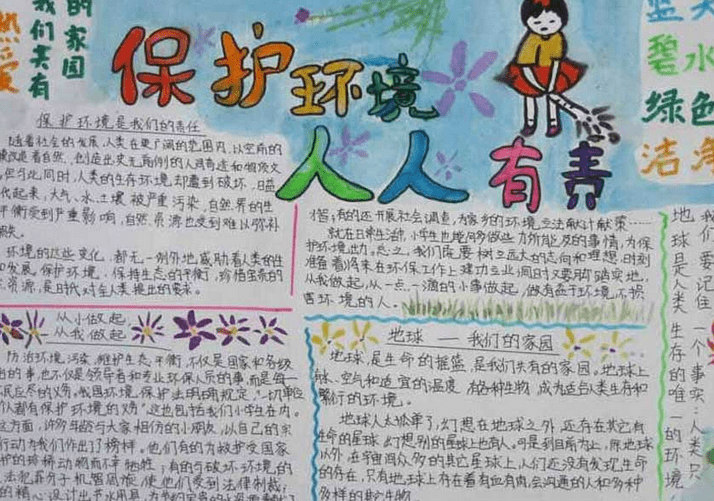 热爱
我们共有
的家园
保护环境
人人有责
蓝天
碧水
绿色
洁净
保护环境是我们的责任
随着社会的发展,人类在更广阔的范围内,以空前的
改造着自然,创造出史无前例的人间奇迹和物质文
但与此同时,人类的生存环境却遭到破坏,日益
代起来,大气、水、土壤被严重污染,自然界的生
平衡受到严重影响,自然资源也受到难以弥补
损失。
环境的这些变化,都无一例外地威胁着人类的生
和发展。保护环境,保持生态的平衡,珍惜宝贵的
资源,是时代对全人类提出的要求。
从小做起
从我做起
防治环境污染,维护生态平衡,不仅是国家和各级
的事,也不仅是领导者和专业环保人员的事,而是每一
民应尽的义务。我国环境保护法明确规定,“一切单位
个人都有保护环境的义务”。这也包括我们小学生在内。
方面,许多年龄与大家相仿的小朋友,以自己的实
行动为我们作出了榜样。他们有的为救护受国家
护的珍稀动物而不牺牲;有的与破坏环境的
法犯罪分子机智周旋,使他们受到法律制裁;
的精心设计出节水用具,为
;有的还开展社会调查,为家乡的环境立法献计献策……
就在日常生活中,小学生也够多做些力所能及的事情,为保
护环境出力。总之,我们既要树立远大的志向和理想,时刻
准备着将来在环保工作上建功立业,同时又要脚踏实地,
从我做起,从一点一滴的小事做起,做有益于环境,不损
害环境的人。
地球——我们的家园
地球,是生命的摇篮,是我们共有的家园。地球上
、空气和适宜的温度,有各种生物,成为适合人类生存和
繁衍的环境。
地球人太孤单了,幻想在地球之外,还存在其它有
生命的星球,幻想别的星球上也有人。可是到目前为止,除地球
以外,在宇宙间众多的其它星球上,人们还没有发现生命
的存在,只有地球上存在着有血有肉,会沟通的人和多种
多样的其它生物。
我们要记住一个事实:人类只
地球是人类生存的唯一的环境